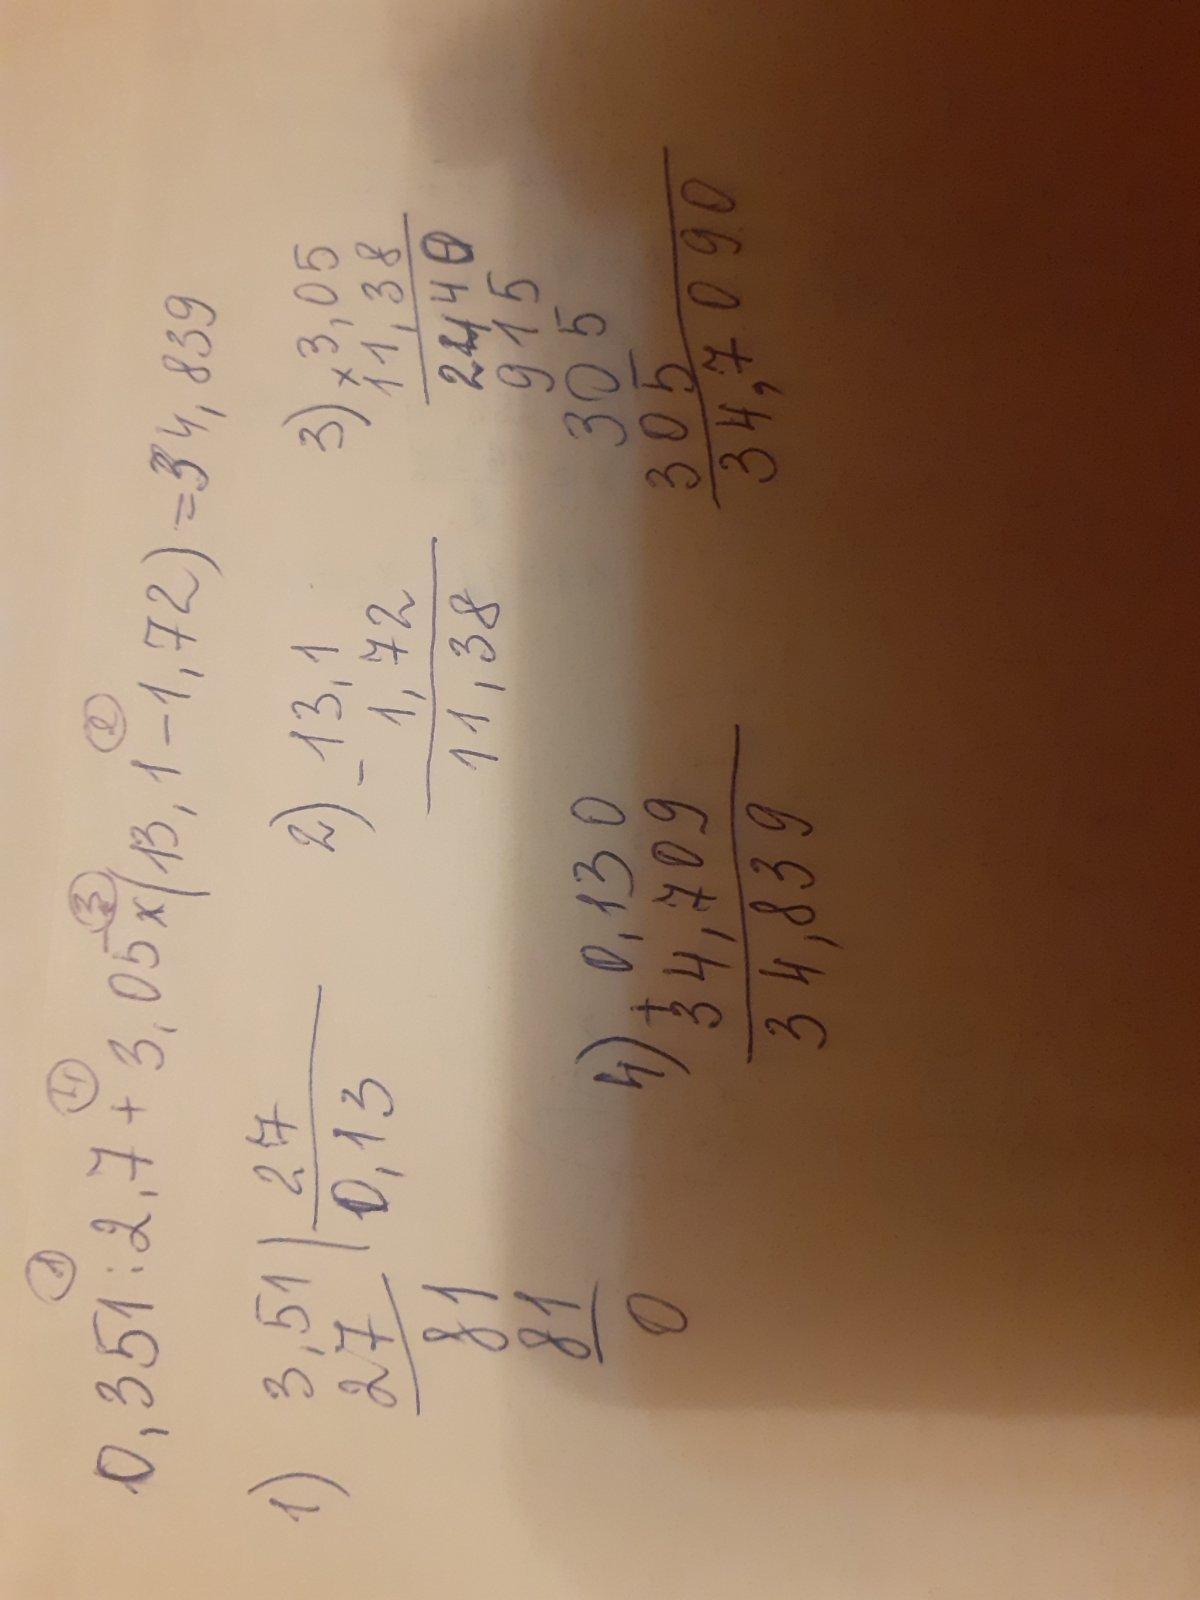 ① ④ ③ ②
0,351:2,7+3,05×(13,1-1,72)=34,839
1) 3,51 | 27
27 0,13
81
81
0
2) -13,1
1,72
11,38
3) ×3,05
11,38
2440
915
305
305
34,7090
4) + 0,130
34,709
34,839